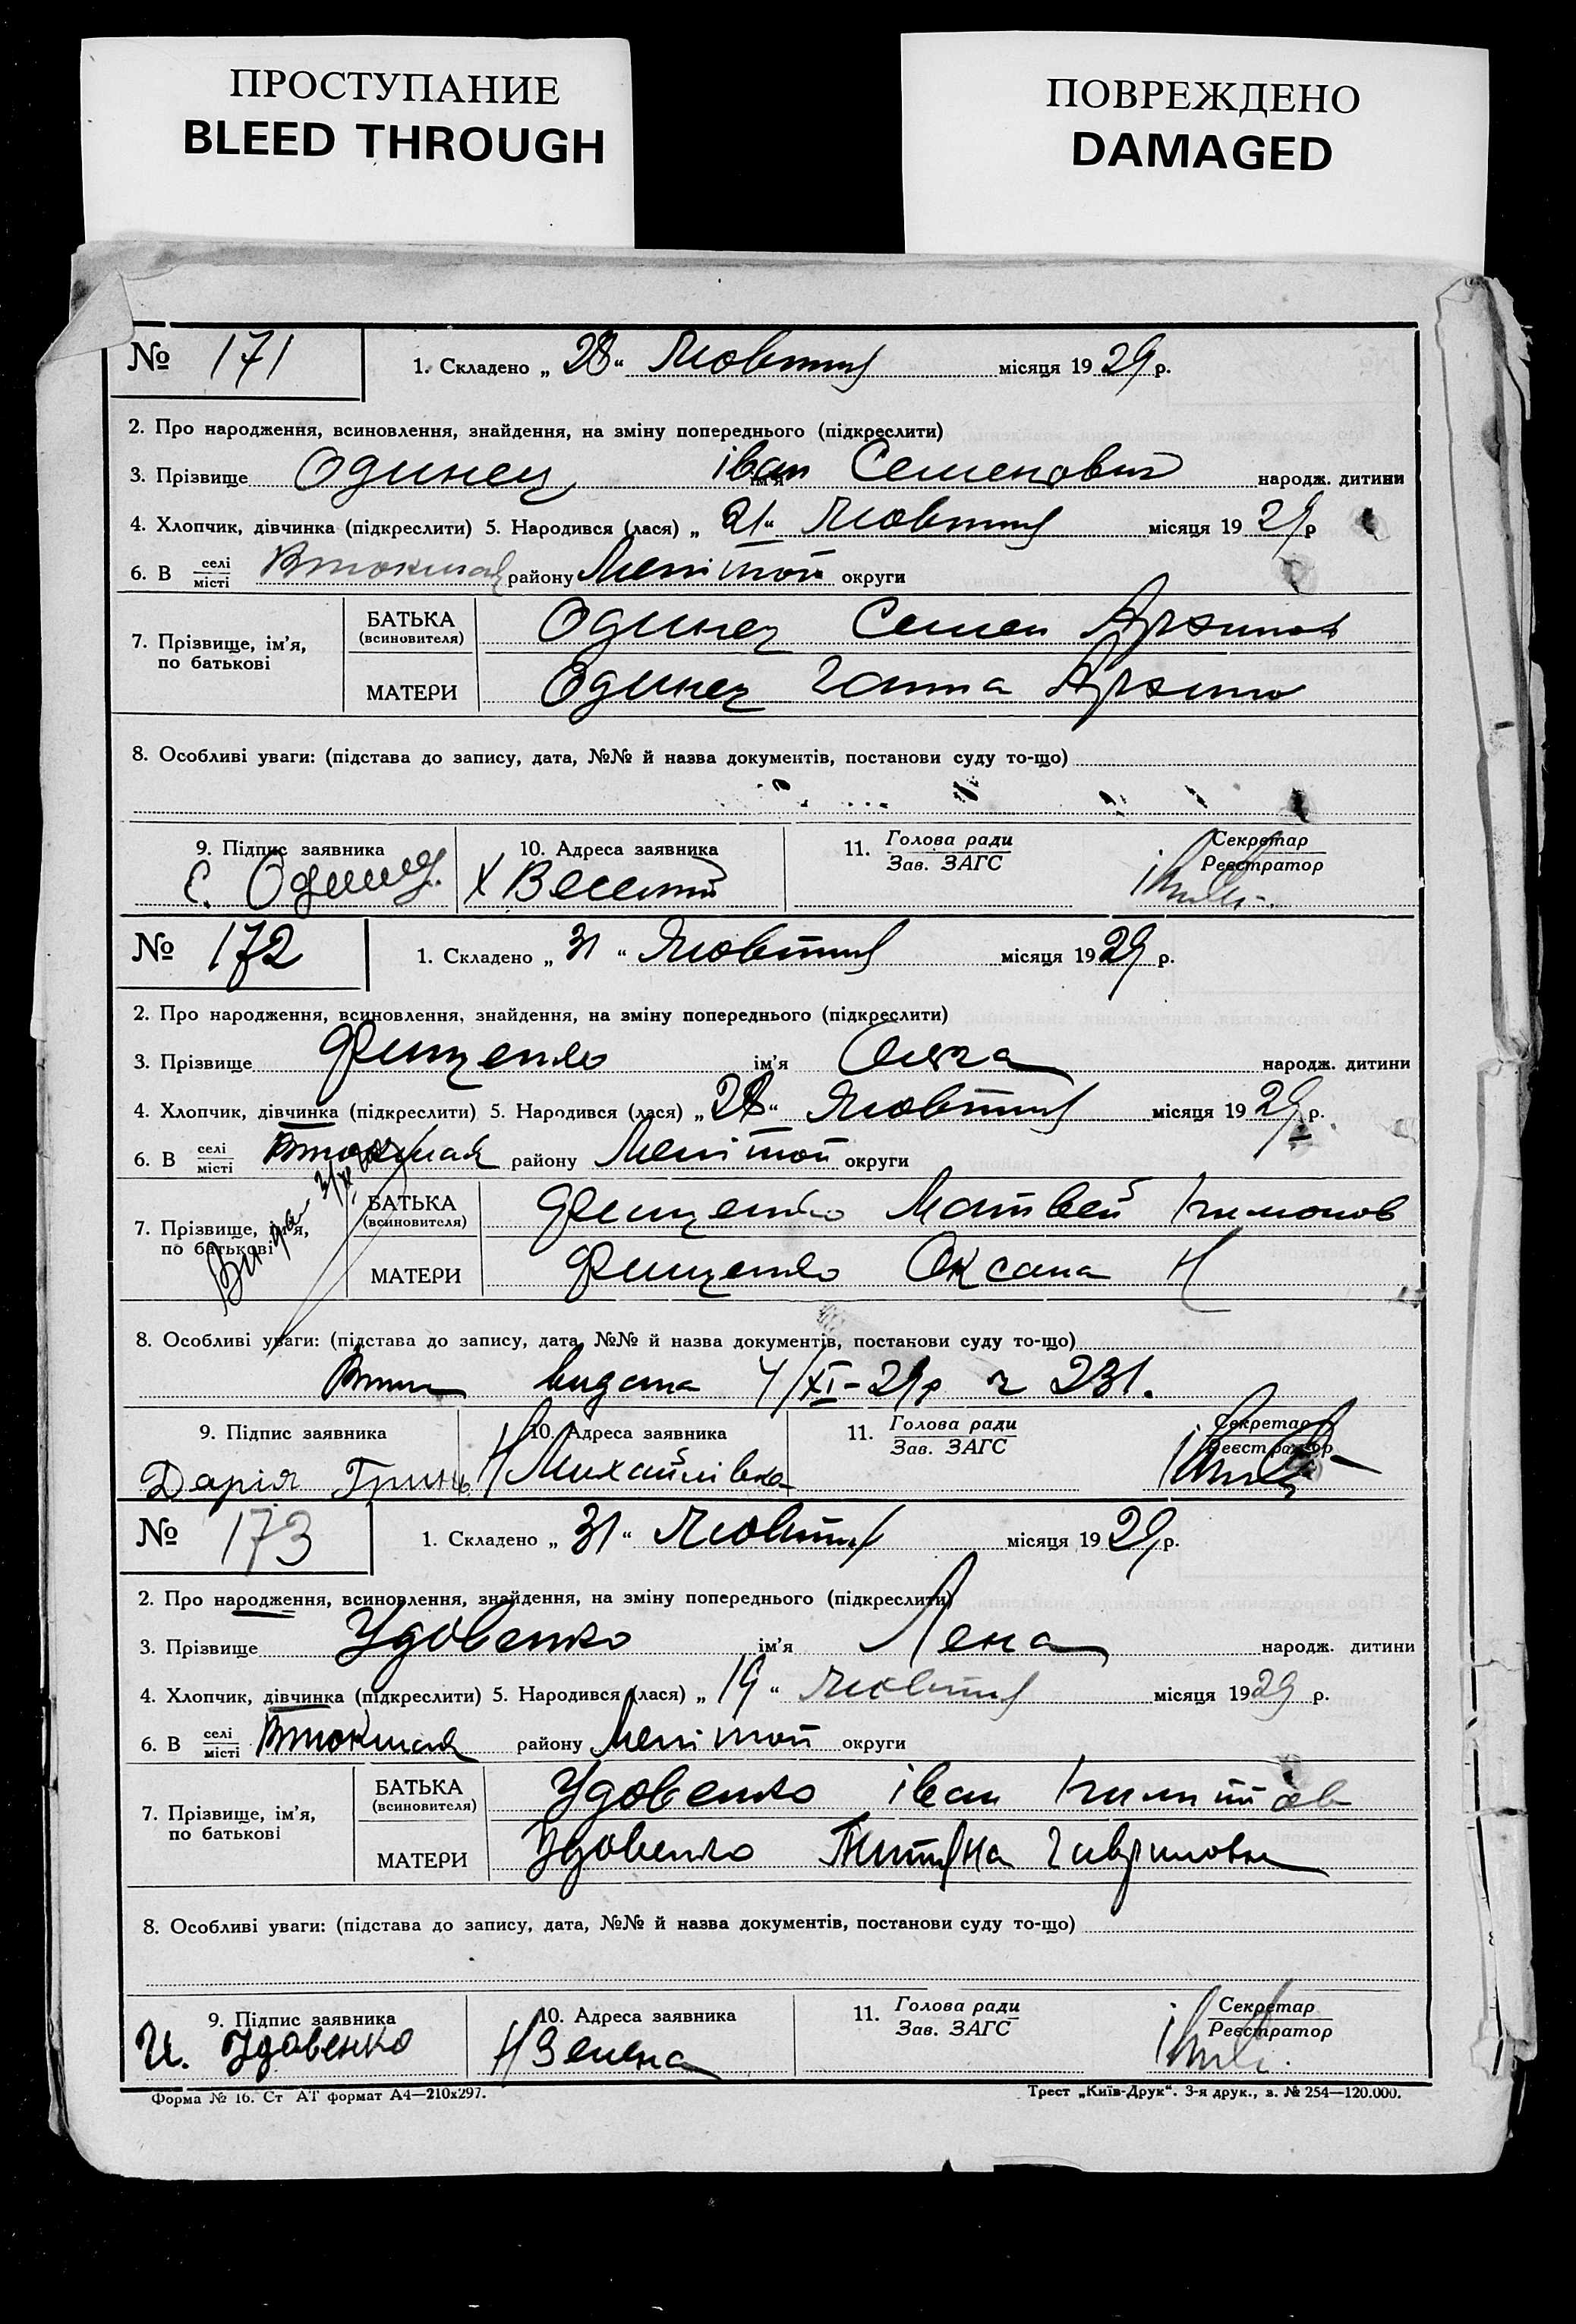 ПРОСТУПАНИЕ
BLEED THROUGH
ПОВРЕЖДЕНО
DAMAGED
№ 171 1. Складено „ 28 “ Жовтня місяця 19 29 р.
2. Про народження, всиновлення, знайдення, на зміну попереднього (підкреслити)
3. Прізвище Одинец ім'я іван Семенович народж. дитини
4. Хлопчик, дівчинка (підкреслити) 5. Народився (лася) „ 21 “ Жовтня місяця 19 29 р
6. В селі місті району Мелітоп округи
7. Прізвище, ім'я, по батькові
БАТЬКА (всиновителя) Одинец Семен
МАТЕРИ Одинец Ганна
8. Особливі уваги: (підстава до запису, дата, №№ й назва документів, постанови суду то-що)
9. Підпис заявника 10. Адреса заявника 11. Голова ради Зав. ЗАГС Секретар Реєстратор
С. Одинец Х
№ 172 1. Складено „ 31 “ Жовтня місяця 19 29 р.
2. Про народження, всиновлення, знайдення, на зміну попереднього (підкреслити)
3. Прізвище Фищенко ім'я Ольга народж. дитини
4. Хлопчик, дівчинка (підкреслити) 5. Народився (лася) „ 28 “ Жовтня місяця 19 29 р.
6. В селі місті району Мелітоп округи
7. Прізвище, ім'я, по батькові
БАТЬКА (всиновителя) Фищенко Матвей
МАТЕРИ Фищенко Оксана Н
8. Особливі уваги: (підстава до запису, дата, №№ й назва документів, постанови суду то-що)
видана 4/XI-29р ч 231.
9. Підпис заявника 10. Адреса заявника 11. Голова ради Зав. ЗАГС Секретар Реєстратор
Дарія Гринь Н Михайлівка
№ 173 1. Складено „ 31 “ Жовтня місяця 19 29 р.
2. Про народження, всиновлення, знайдення, на зміну попереднього (підкреслити)
3. Прізвище Удовенко ім'я Лена народж. дитини
4. Хлопчик, дівчинка (підкреслити) 5. Народився (лася) „ 19 “ Жовтня місяця 19 29 р.
6. В селі місті району Мелітоп округи
7. Прізвище, ім'я, по батькові
БАТЬКА (всиновителя) Удовенко іван
МАТЕРИ Удовенко Титяна Гавриловна
8. Особливі уваги: (підстава до запису, дата, №№ й назва документів, постанови суду то-що)
9. Підпис заявника 10. Адреса заявника 11. Голова ради Зав. ЗАГС Секретар Реєстратор
И. Удовенко Н Зелена
Форма № 16. Ст АТ формат А4—210х297. Трест „Київ-Друк“. 3-я друк., з. № 254—120.000.